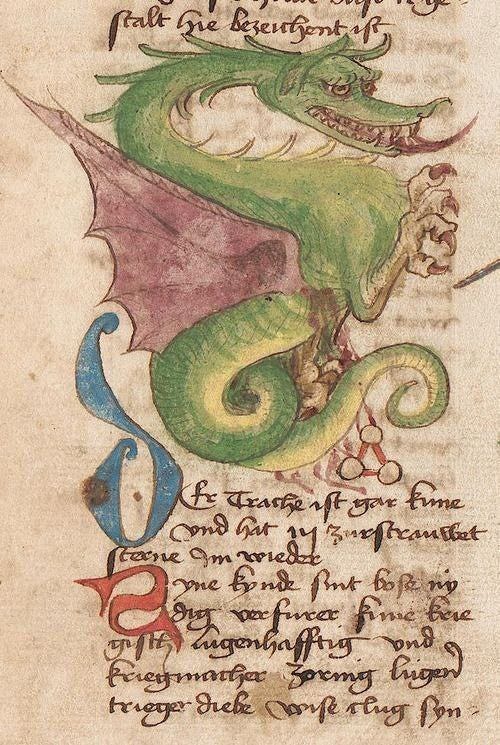 stalt hie bezeichent ist
Er Trache ist gar kune
vnd hat iij zurstrauwet
sterne Im wieder
Syne kynde sint bose ny
dig verfurer kune krie
gisch lugenhafftig vnd
kriegmacher zornig lugen
trieger diebe wise clug syn